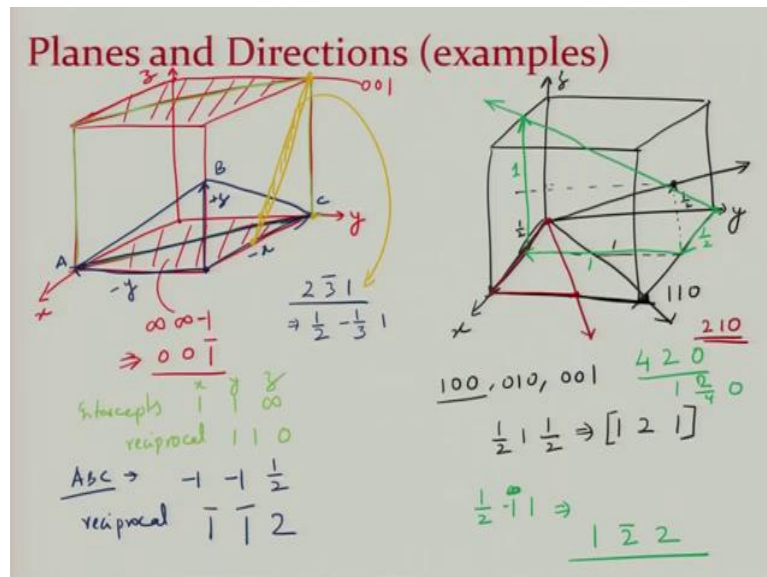 Planes and Directions (examples)
z
001
B
+z
C
y
A
-y
-x
x
∞ ∞ -1
⇒ 0 0 1̅
2 3̅ 1
⇒ 1/2 -1/3 1
x y z
Intercepts 1 1 ∞
reciprocal 1 1 0
ABC → -1 -1 1/2
reciprocal 1̅ 1̅ 2
z
1
1/2
1/2
y
1/2
1
1
110
x
210
420
1 2/4 0
100, 010, 001
1/2 1 1/2 ⇒ [1 2 1]
1/2 -1 1 ⇒
1 2̅ 2